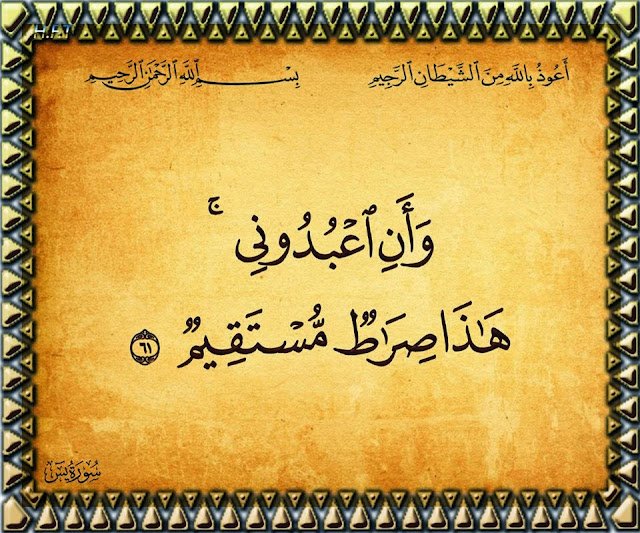 H.F1
أَعُوذُ بِاللَّهِ مِنَ الشَّيْطَانِ الرَّجِيمِ بِسْمِ ٱللَّهِ ٱلرَّحْمَٰنِ ٱلرَّحِيمِ
وَأَنِ ٱعْبُدُونِى ۚ
هَٰذَا صِرَٰطٌ مُّسْتَقِيمٌ ٦١
سُورَةُ يسٓ